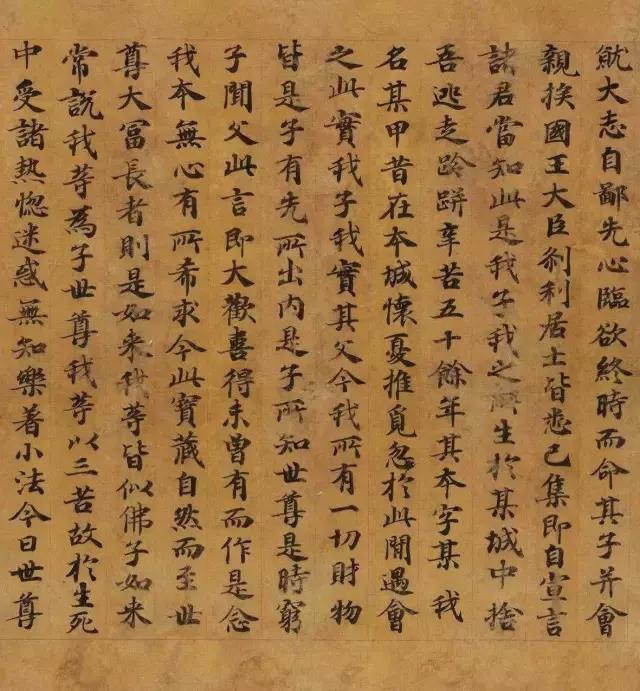 就大志自鄙先心臨欲終時而命其子并會
親族國王大臣剎利居士皆悉已集即自宣言
諸君當知此是我子我之所生於某城中捨
吾逃走跉跰辛苦五十餘年其本字某我
名某甲昔在本城懷憂推覓忽於此間遇會
之此實我子我實其父今我所有一切財物
皆是子有先所出內是子所知世尊是時窮
子聞父此言即大歡喜得未曾有而作是念
我本無心有所希求今此寶藏自然而至世
尊大富長者則是如來我等皆似佛子如來
常說我等為子世尊我等以三苦故於生死
中受諸熱惚迷惑無知樂著小法今日世尊